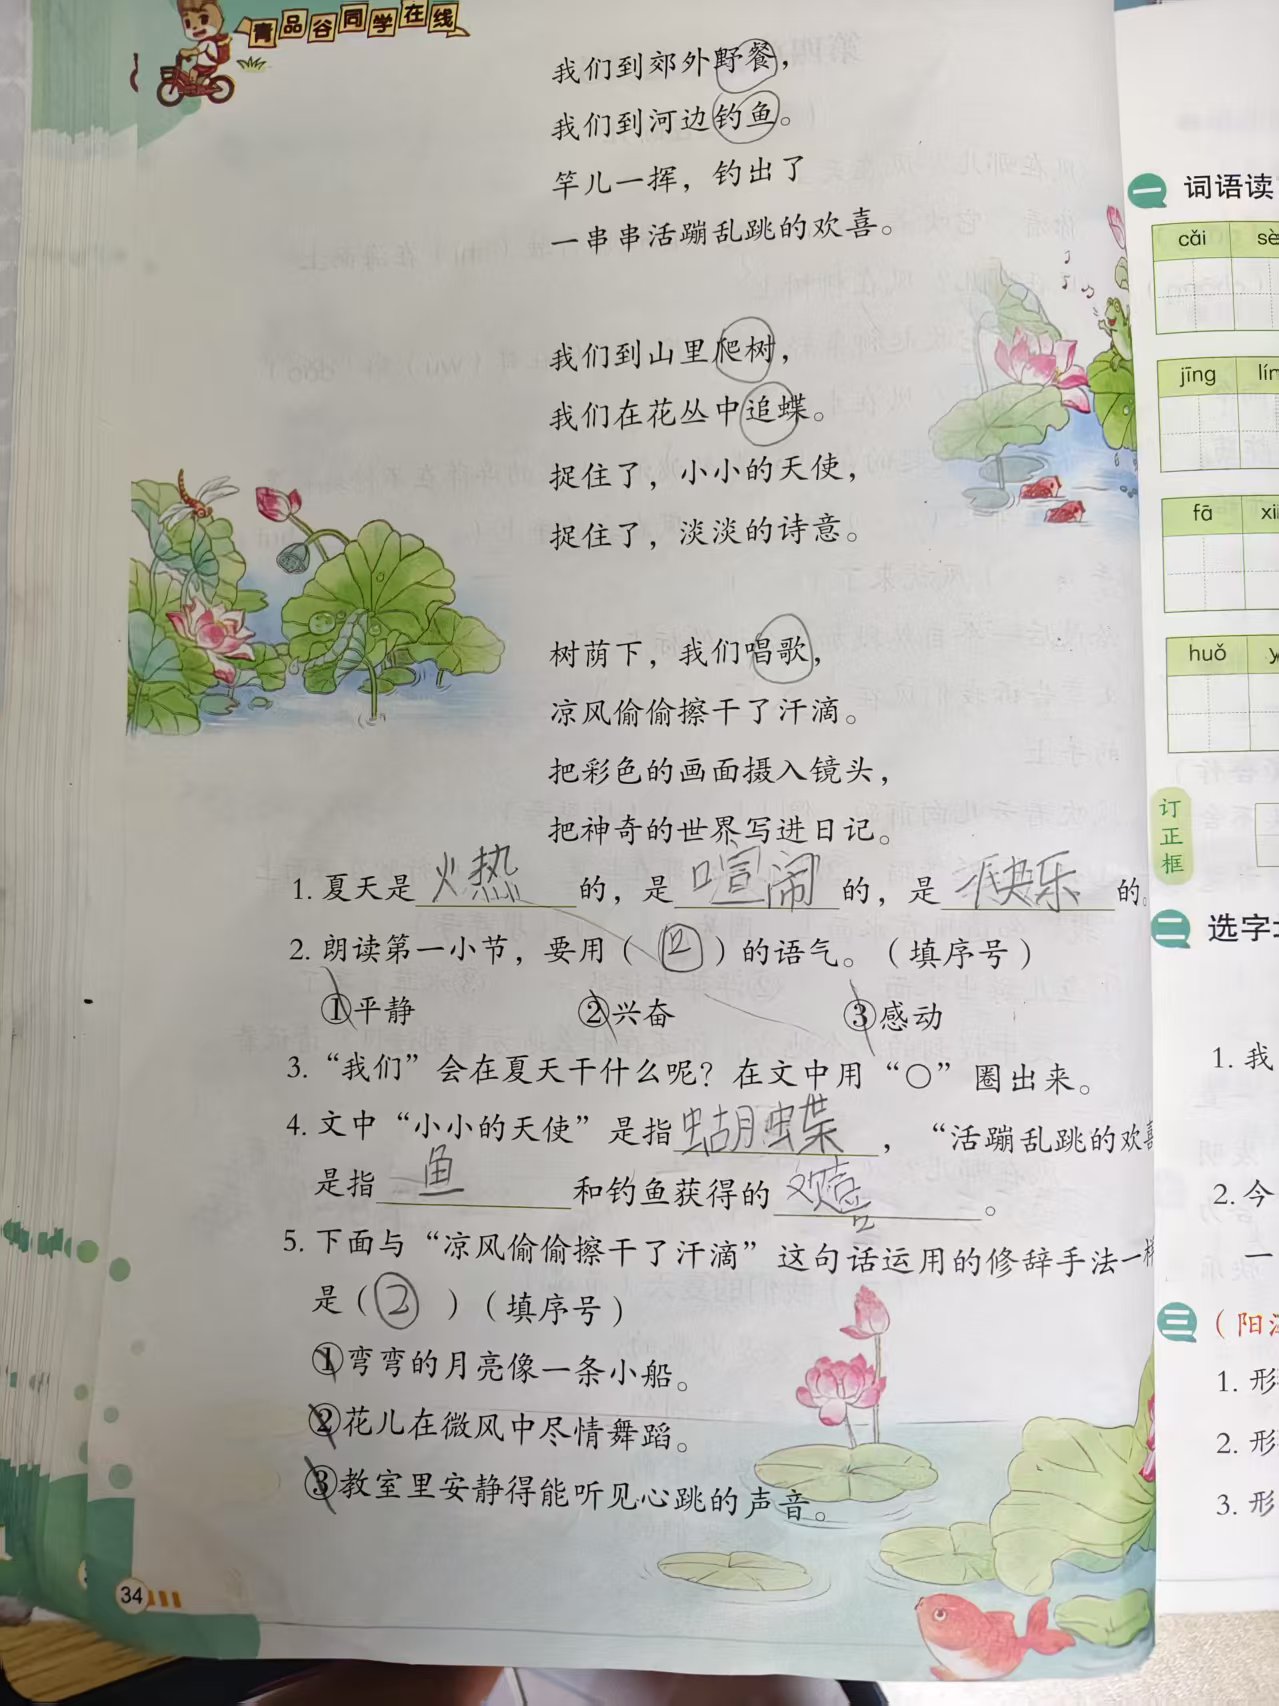 青品谷同学在线
我们到郊外野餐，
我们到河边钓鱼。
竿儿一挥，钓出了
一串串活蹦乱跳的欢喜。
我们到山里爬树，
我们在花丛中追蝶。
捉住了，小小的天使，
捉住了，淡淡的诗意。
树荫下，我们唱歌，
凉风偷偷擦干了汗滴。
把彩色的画面摄入镜头，
把神奇的世界写进日记。
1. 夏天是火热的，是喧闹的，是快乐的。
2. 朗读第一小节，要用（②）的语气。（填序号）
①平静 ②兴奋 ③感动
3. “我们”会在夏天干什么呢？在文中用“○”圈出来。
4. 文中“小小的天使”是指蝴蝶，“活蹦乱跳的欢喜
是指鱼和钓鱼获得的欢喜。
5. 下面与“凉风偷偷擦干了汗滴”这句话运用的修辞手法一样
是（②）（填序号）
①弯弯的月亮像一条小船。
②花儿在微风中尽情舞蹈。
③教室里安静得能听见心跳的声音。
34
一 词语读
cǎi sè
jīng lín
fā
huǒ
订正框
二 选字
1. 我
2. 今
一
三 （阳
1. 形
2. 形
3. 形